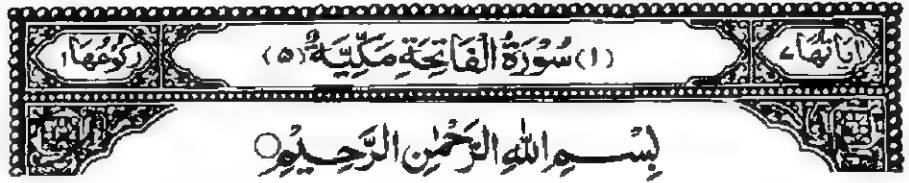 اٰيَاتُهَا ۷ (۱) سُوْرَةُ الْفَاتِحَةِ مَكِّيَّةٌ (۵) رُكُوْعُهَا ۱
بِسْمِ اللّٰهِ الرَّحْمٰنِ الرَّحِيْمِ ○